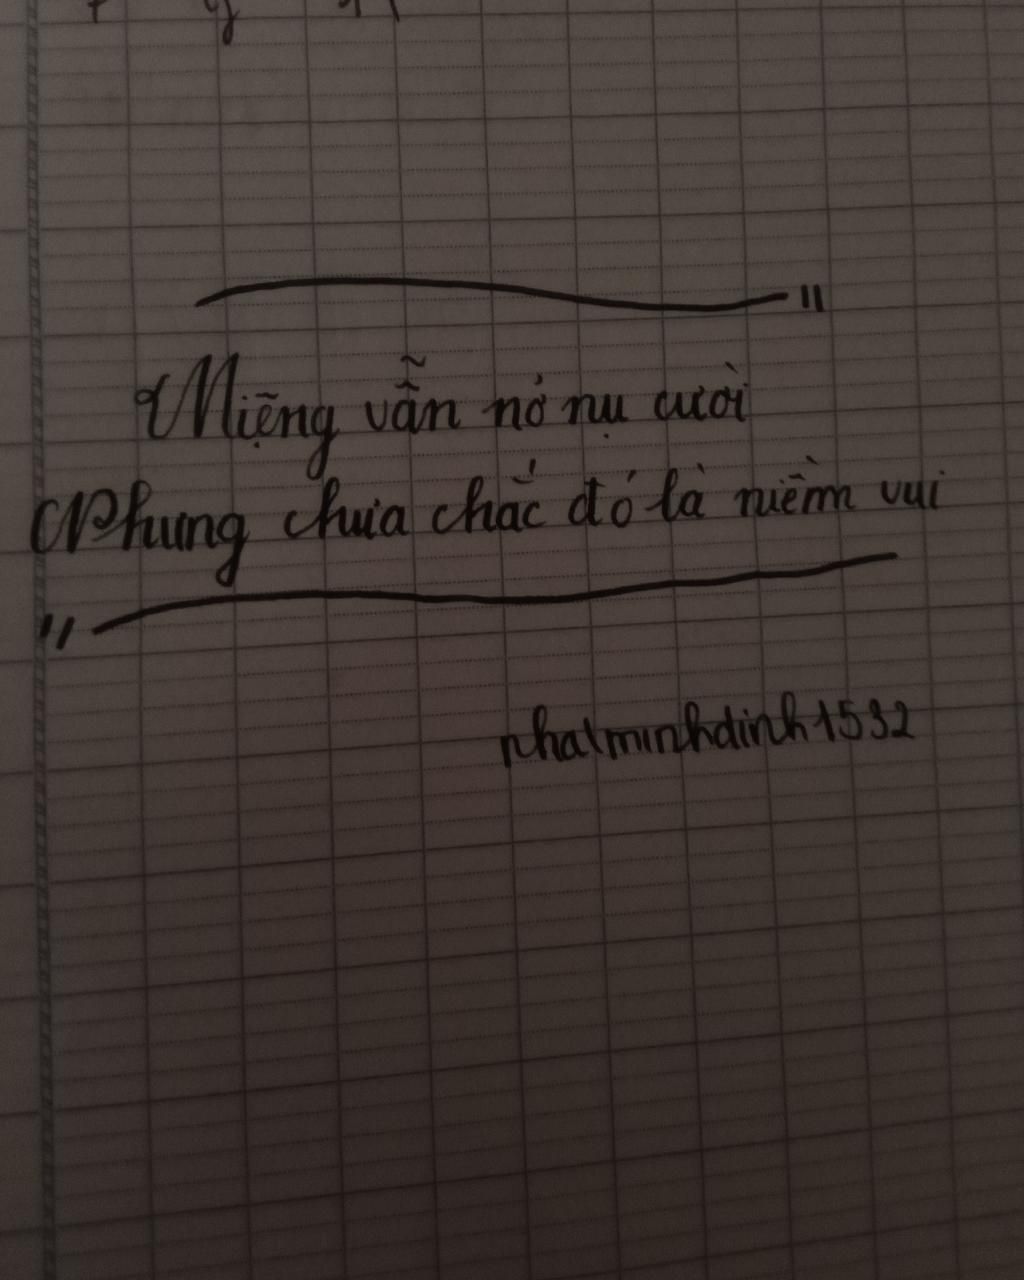 Miệng vẫn nở nụ cười
Nhưng chưa chắc đó là niềm vui
nhatminhdinh1532